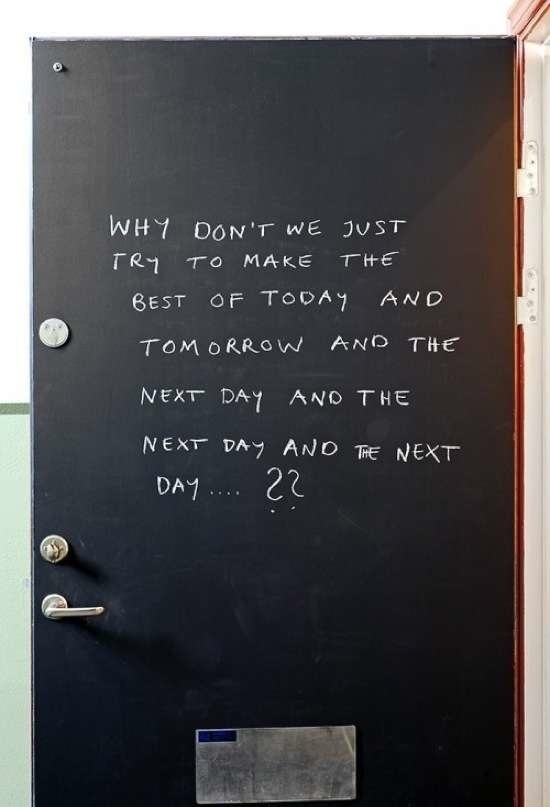 WHY DON'T WE JUST
TRY TO MAKE THE
BEST OF TODAY AND
TOMORROW AND THE
NEXT DAY AND THE
NEXT DAY AND THE NEXT
DAY.... ??